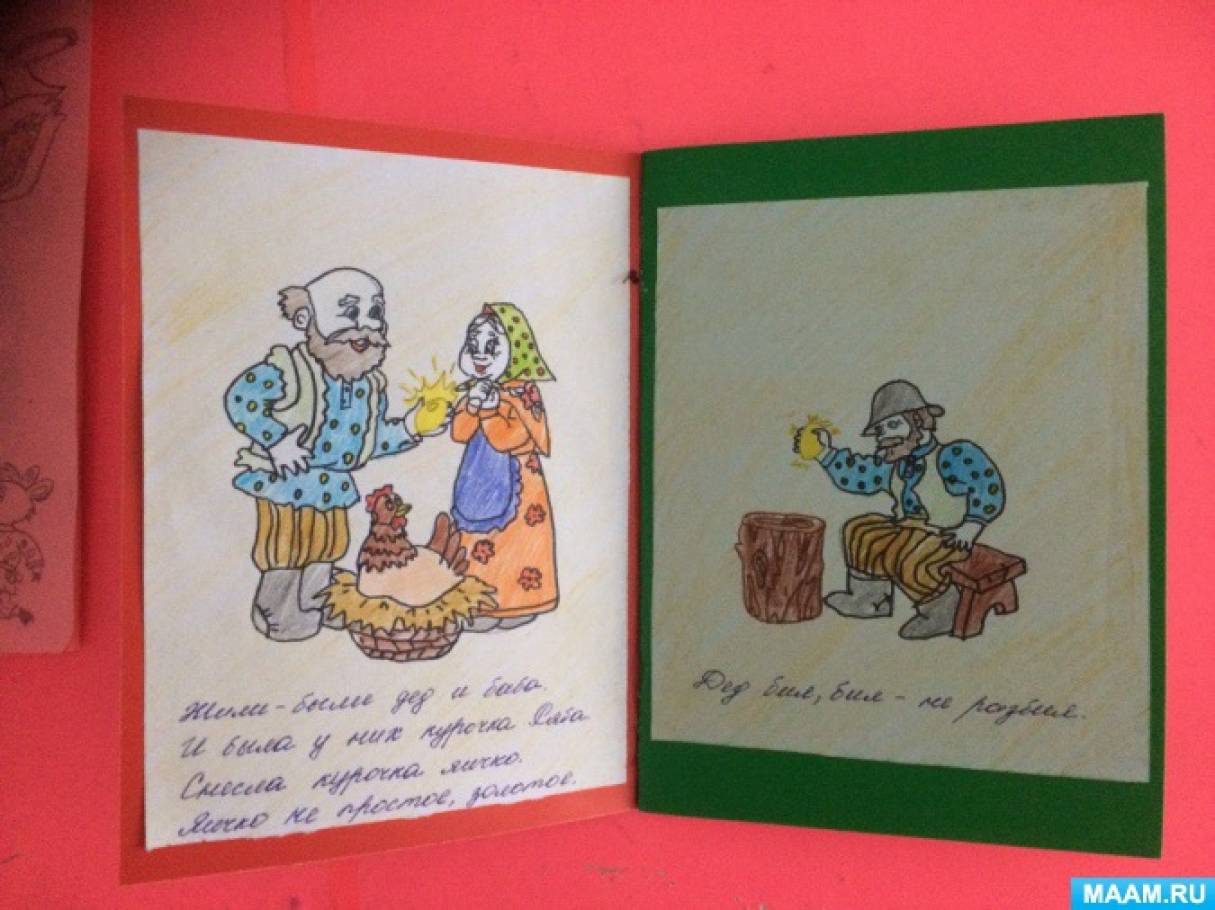 Жили-были дед и баба.
И была у них курочка Ряба
Снесла курочка яичко.
Яичко не простое, золотое.
Дед бил, бил - не разбил.
MAAM.RU